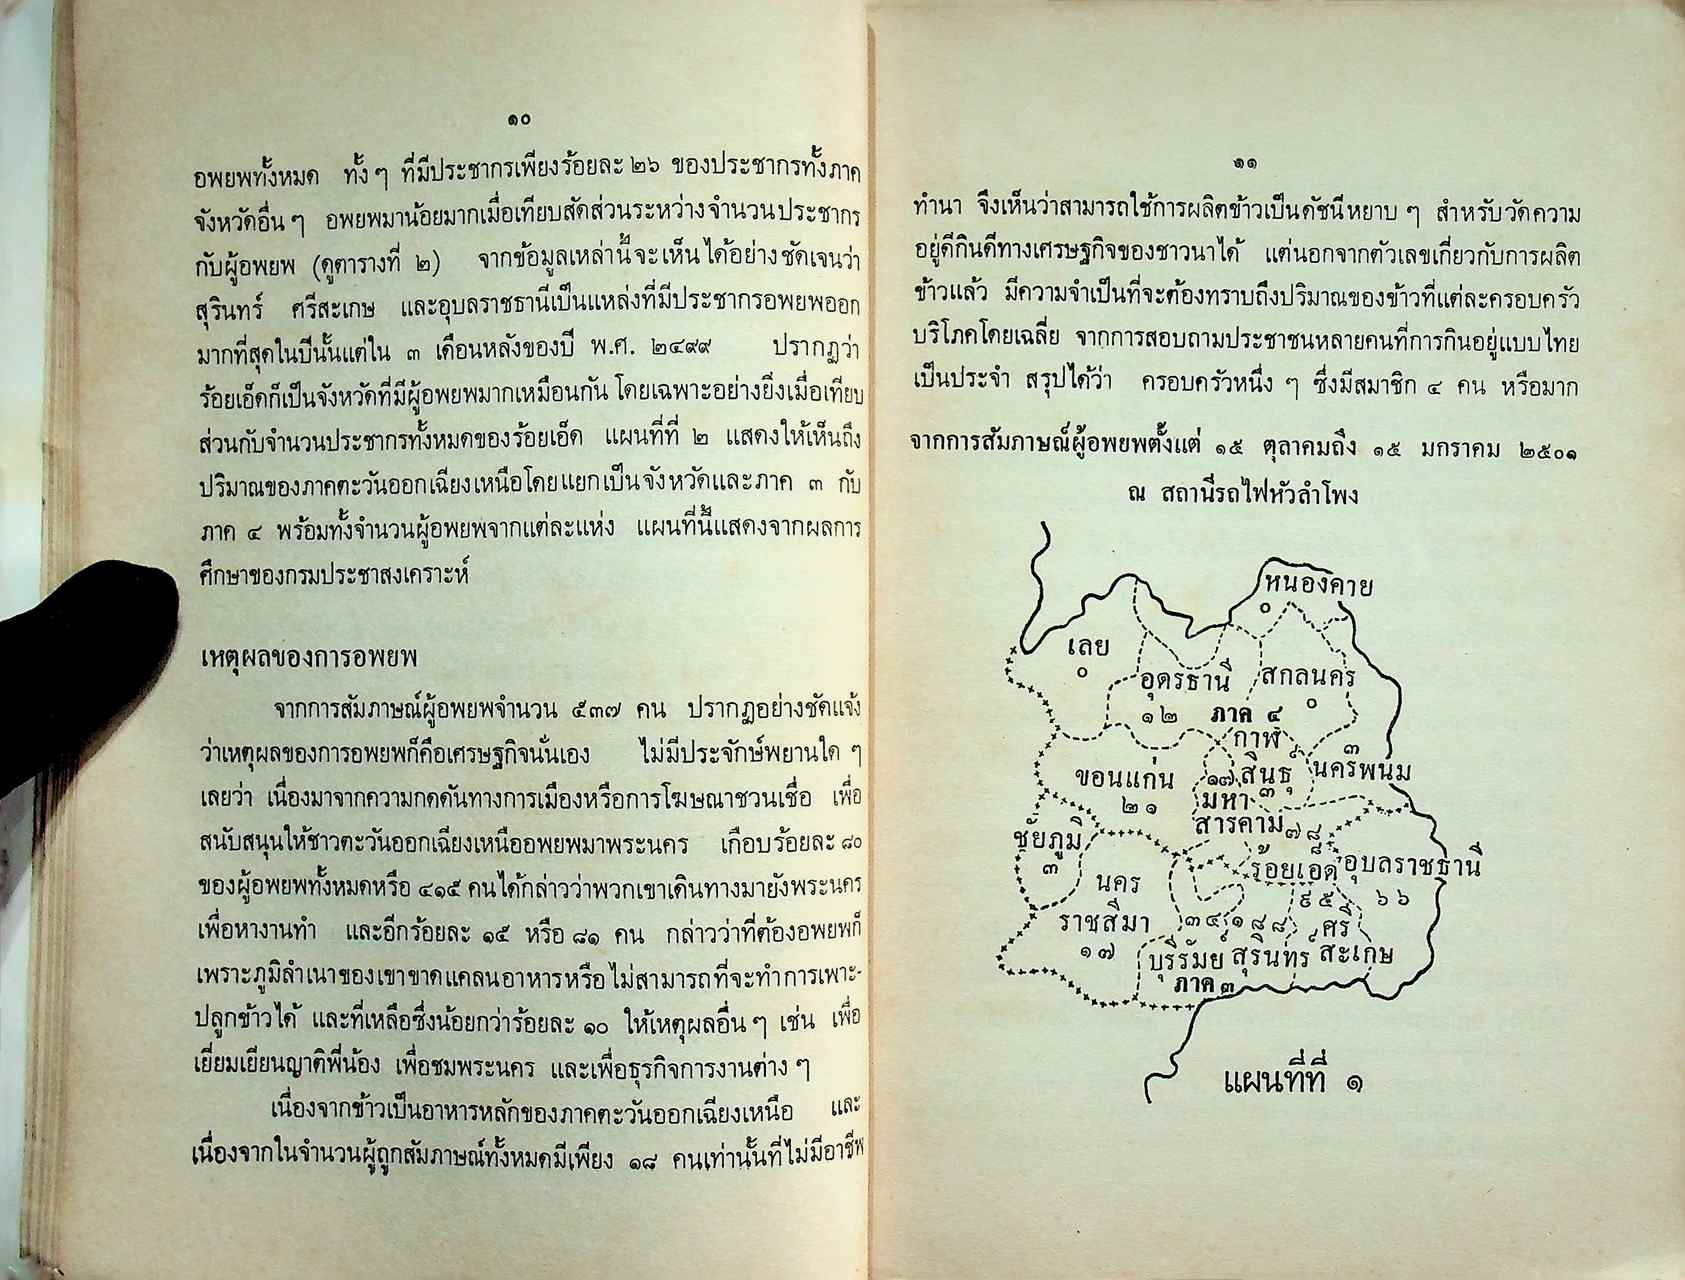 ๑๐
อพยพทั้งหมด ทั้ง ๆ ที่มีประชากรเพียงร้อยละ ๒๖ ของประชากรทั้งภาค
จังหวัดอื่น ๆ อพยพมาน้อยมากเมื่อเทียบสัดส่วนระหว่างจำนวนประชากร
กับผู้อพยพ (ดูตารางที่ ๒) จากข้อมูลเหล่านี้จะเห็นได้อย่างชัดเจนว่า
สุรินทร์ ศรีสะเกษ และอุบลราชธานีเป็นแหล่งที่มีประชากรอพยพออก
มากที่สุดในปีนั้นแต่ใน ๓ เดือนหลังของปี พ.ศ. ๒๔๙๙ ปรากฏว่า
ร้อยเอ็ดก็เป็นจังหวัดที่มีผู้อพยพมากเหมือนกัน โดยเฉพาะอย่างยิ่งเมื่อเทียบ
ส่วนกับจำนวนประชากรทั้งหมดของร้อยเอ็ด แผนที่ที่ ๒ แสดงให้เห็นถึง
ปริมาณของภาคตะวันออกเฉียงเหนือโดยแยกเป็นจังหวัดและภาค ๓ กับ
ภาค ๔ พร้อมทั้งจำนวนผู้อพยพจากแต่ละแห่ง แผนที่นี้แสดงจากผลการ
ศึกษาของกรมประชาสงเคราะห์
เหตุผลของการอพยพ
จากการสัมภาษณ์ผู้อพยพจำนวน ๕๓๗ คน ปรากฏอย่างชัดแจ้ง
ว่าเหตุผลของการอพยพก็คือเศรษฐกิจนั่นเอง ไม่มีประจักษ์พยานใด ๆ
เลยว่า เนื่องมาจากความกดดันทางการเมืองหรือการโฆษณาชวนเชื่อ เพื่อ
สนับสนุนให้ชาวตะวันออกเฉียงเหนืออพยพมาพระนคร เกือบร้อยละ ๘๐
ของผู้อพยพทั้งหมดหรือ ๔๑๕ คนได้กล่าวว่าพวกเขาเดินทางมายังพระนคร
เพื่อหางานทำ และอีกร้อยละ ๑๕ หรือ ๘๑ คน กล่าวว่าที่ต้องอพยพก็
เพราะภูมิลำเนาของเขาขาดแคลนอาหารหรือไม่สามารถที่จะทำการเพาะ-
ปลูกข้าวได้ และที่เหลือซึ่งน้อยกว่าร้อยละ ๑๐ ให้เหตุผลอื่น ๆ เช่น เพื่อ
เยี่ยมเยียนญาติพี่น้อง เพื่อชมพระนคร และเพื่อธุรกิจการงานต่าง ๆ
เนื่องจากข้าวเป็นอาหารหลักของภาคตะวันออกเฉียงเหนือ และ
เนื่องจากในจำนวนผู้ถูกสัมภาษณ์ทั้งหมดมีเพียง ๑๘ คนเท่านั้นที่ไม่มีอาชีพ
๑๑
ทำนา จึงเห็นว่าสามารถใช้การผลิตข้าวเป็นดัชนีหยาบ ๆ สำหรับวัดความ
อยู่ดีกินดีทางเศรษฐกิจของชาวนาได้ แต่นอกจากตัวเลขเกี่ยวกับการผลิต
ข้าวแล้ว มีความจำเป็นที่จะต้องทราบถึงปริมาณของข้าวที่แต่ละครอบครัว
บริโภคโดยเฉลี่ย จากการสอบถามประชาชนหลายคนที่การกินอยู่แบบไทย
เป็นประจำ สรุปได้ว่า ครอบครัวหนึ่ง ๆ ซึ่งมีสมาชิก ๔ คน หรือมาก
จากการสัมภาษณ์ผู้อพยพตั้งแต่ ๑๕ ตุลาคมถึง ๑๕ มกราคม ๒๕๐๑
ณ สถานีรถไฟหัวลำโพง
หนองคาย
๐
เลย
๐
อุดรธานี
๑๒
สกลนคร
๐
ภาค ๔
กาฬ
สินธุ์
๓
๓
นครพนม
ขอนแก่น
๒๑
๑๗
มหา
สารคาม
๗๘
๘
ชัยภูมิ
๓
ร้อยเอ็ด
อุบลราชธานี
๖๖
นคร
ราชสีมา
๑๗
๓๔
๑๘๘
๙๕
ศรี
สะเกษ
บุรีรัมย์
สุรินทร์
ภาค ๓
แผนที่ที่ ๑